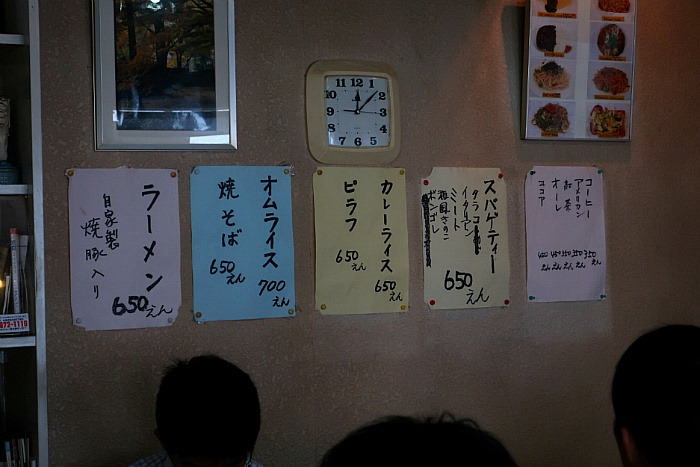 ラーメン
自家製
焼豚入り
650えん
オムライス
700えん
焼そば
650えん
カレーライス
650えん
ピラフ
650えん
スパゲティー
タラコ
イタリアン
ミート
和風きのこ
ボンゴレ
650えん
コーヒー 350えん
アメリカン 350えん
紅茶 350えん
オーレ 450えん
ココア 400えん
11 12 1
10 2
9 3
8 4
7 6 5